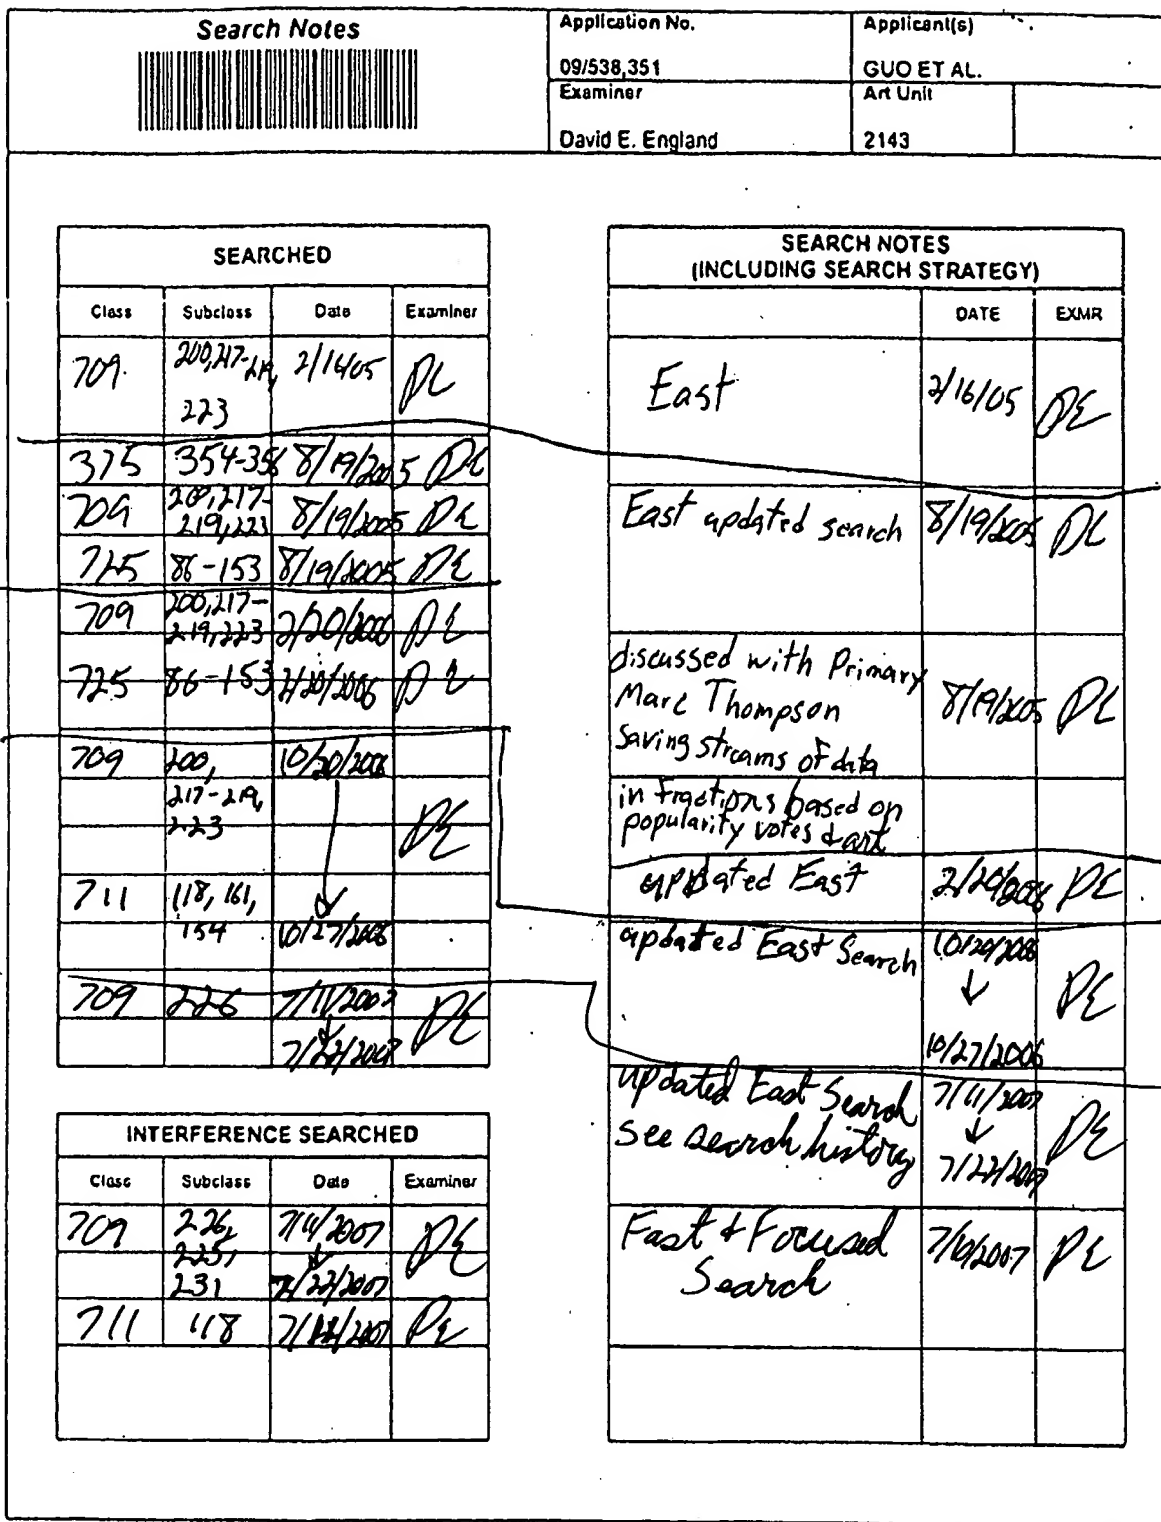 Search Notes
Application No.
Applicant(s)
09/538,351
GUO ET AL.
Examiner
Art Unit
David E. England
2143
SEARCHED
Class Subclass Date Examiner
709 200,217-219, 2/16/05 DE
223
375 354-356 8/19/2005 DE
709 200,217- 8/19/2005 DE
219,223
725 86-153 8/19/2005 DE
709 200,217- 2/20/2006 DE
219,223
725 86-153 2/20/2006 DE
709 200, 10/20/2006
217-219,
223 DE
711 118, 161,
154 10/27/2006
709 226 7/11/2007 DE
7/22/2007
INTERFERENCE SEARCHED
Class Subclass Date Examiner
709 226, 7/11/2007 DE
225,
231 7/22/2007
711 118 DE
SEARCH NOTES
(INCLUDING SEARCH STRATEGY)
DATE EXMR
East 2/16/05 DE
East updated search 8/19/2005 DE
discussed with Primary
Marc Thompson 8/19/2005 DE
saving streams of data
in fractions based on
popularity votes & art
updated East 2/20/2006 DE
updated East Search 10/20/2006 DE
10/27/2006
updated East Search 7/11/2007 DE
see search history 7/22/2007
East & Focused 7/10/2007 DE
Search